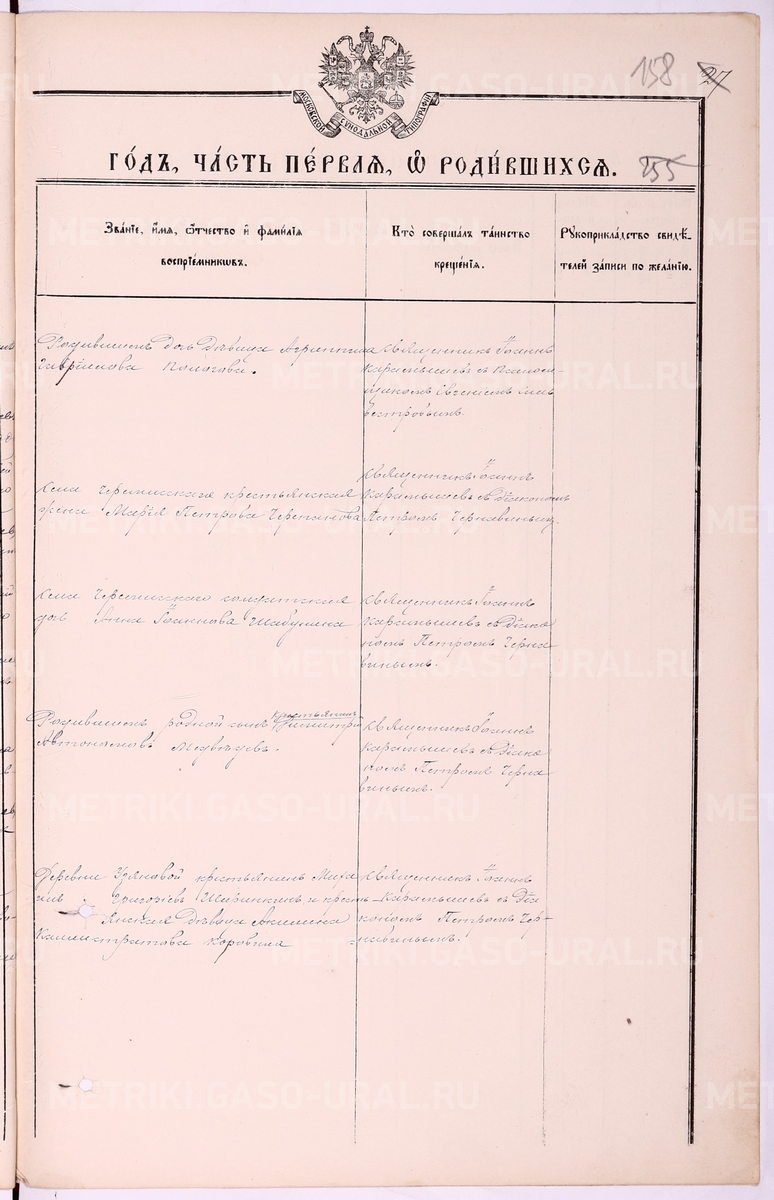 158 27
МОСКОВСКОЙ СѴНОДАЛЬНОЙ ТИПОГРАФІИ
ГО́ДЪ, ЧА́СТЬ ПЕ́РВАѦ, Ѡ҆ РОДИ́ВШИХСѦ.
255
Зва́нїе, и҆́мѧ, ѻ҆́тчество и҆ фами́лїѧ
воспрїе́мникѡвъ.
Кто̀ соверша́лъ та́инство
креще́нїѧ.
Рꙋкоприкла́дство свидѣ́-
телей за́писи по жела́нїю.
Родившихъ дочь дѣвица Агриппина
Гавріилова
Священникъ Іоаннъ
Карамышевъ съ Псалом-
щикомъ Евгеніемъ Силь
вестровымъ.
Села Черемисскаго крестьянская
жена Марія Петрова Черепанова
Священникъ Іоаннъ
Карамышевъ съ Діакономъ
Петромъ Чернавинымъ.
Села Черемисскаго солдатская
дочь Анна Іоаннова Шабунина
Священникъ Іоаннъ
Карамышевъ съ Діако
номъ Петромъ Черна
винымъ.
Родившихъ родной сынъ крестьянинъ Димитрій
Автономовъ Медвѣдевъ.
Священникъ Іоаннъ
Карамышевъ съ Діако
номъ Петромъ Черна
винымъ.
Деревни крестьянинъ Миха
илъ Григорьевъ и кресть
янская дѣвица Акилина
Каллистратова Коровина
Священникъ Іоаннъ
Карамышевъ съ Діа
кономъ Петромъ Чер-
навинымъ.
METRIKI.GASO-URAL.RU